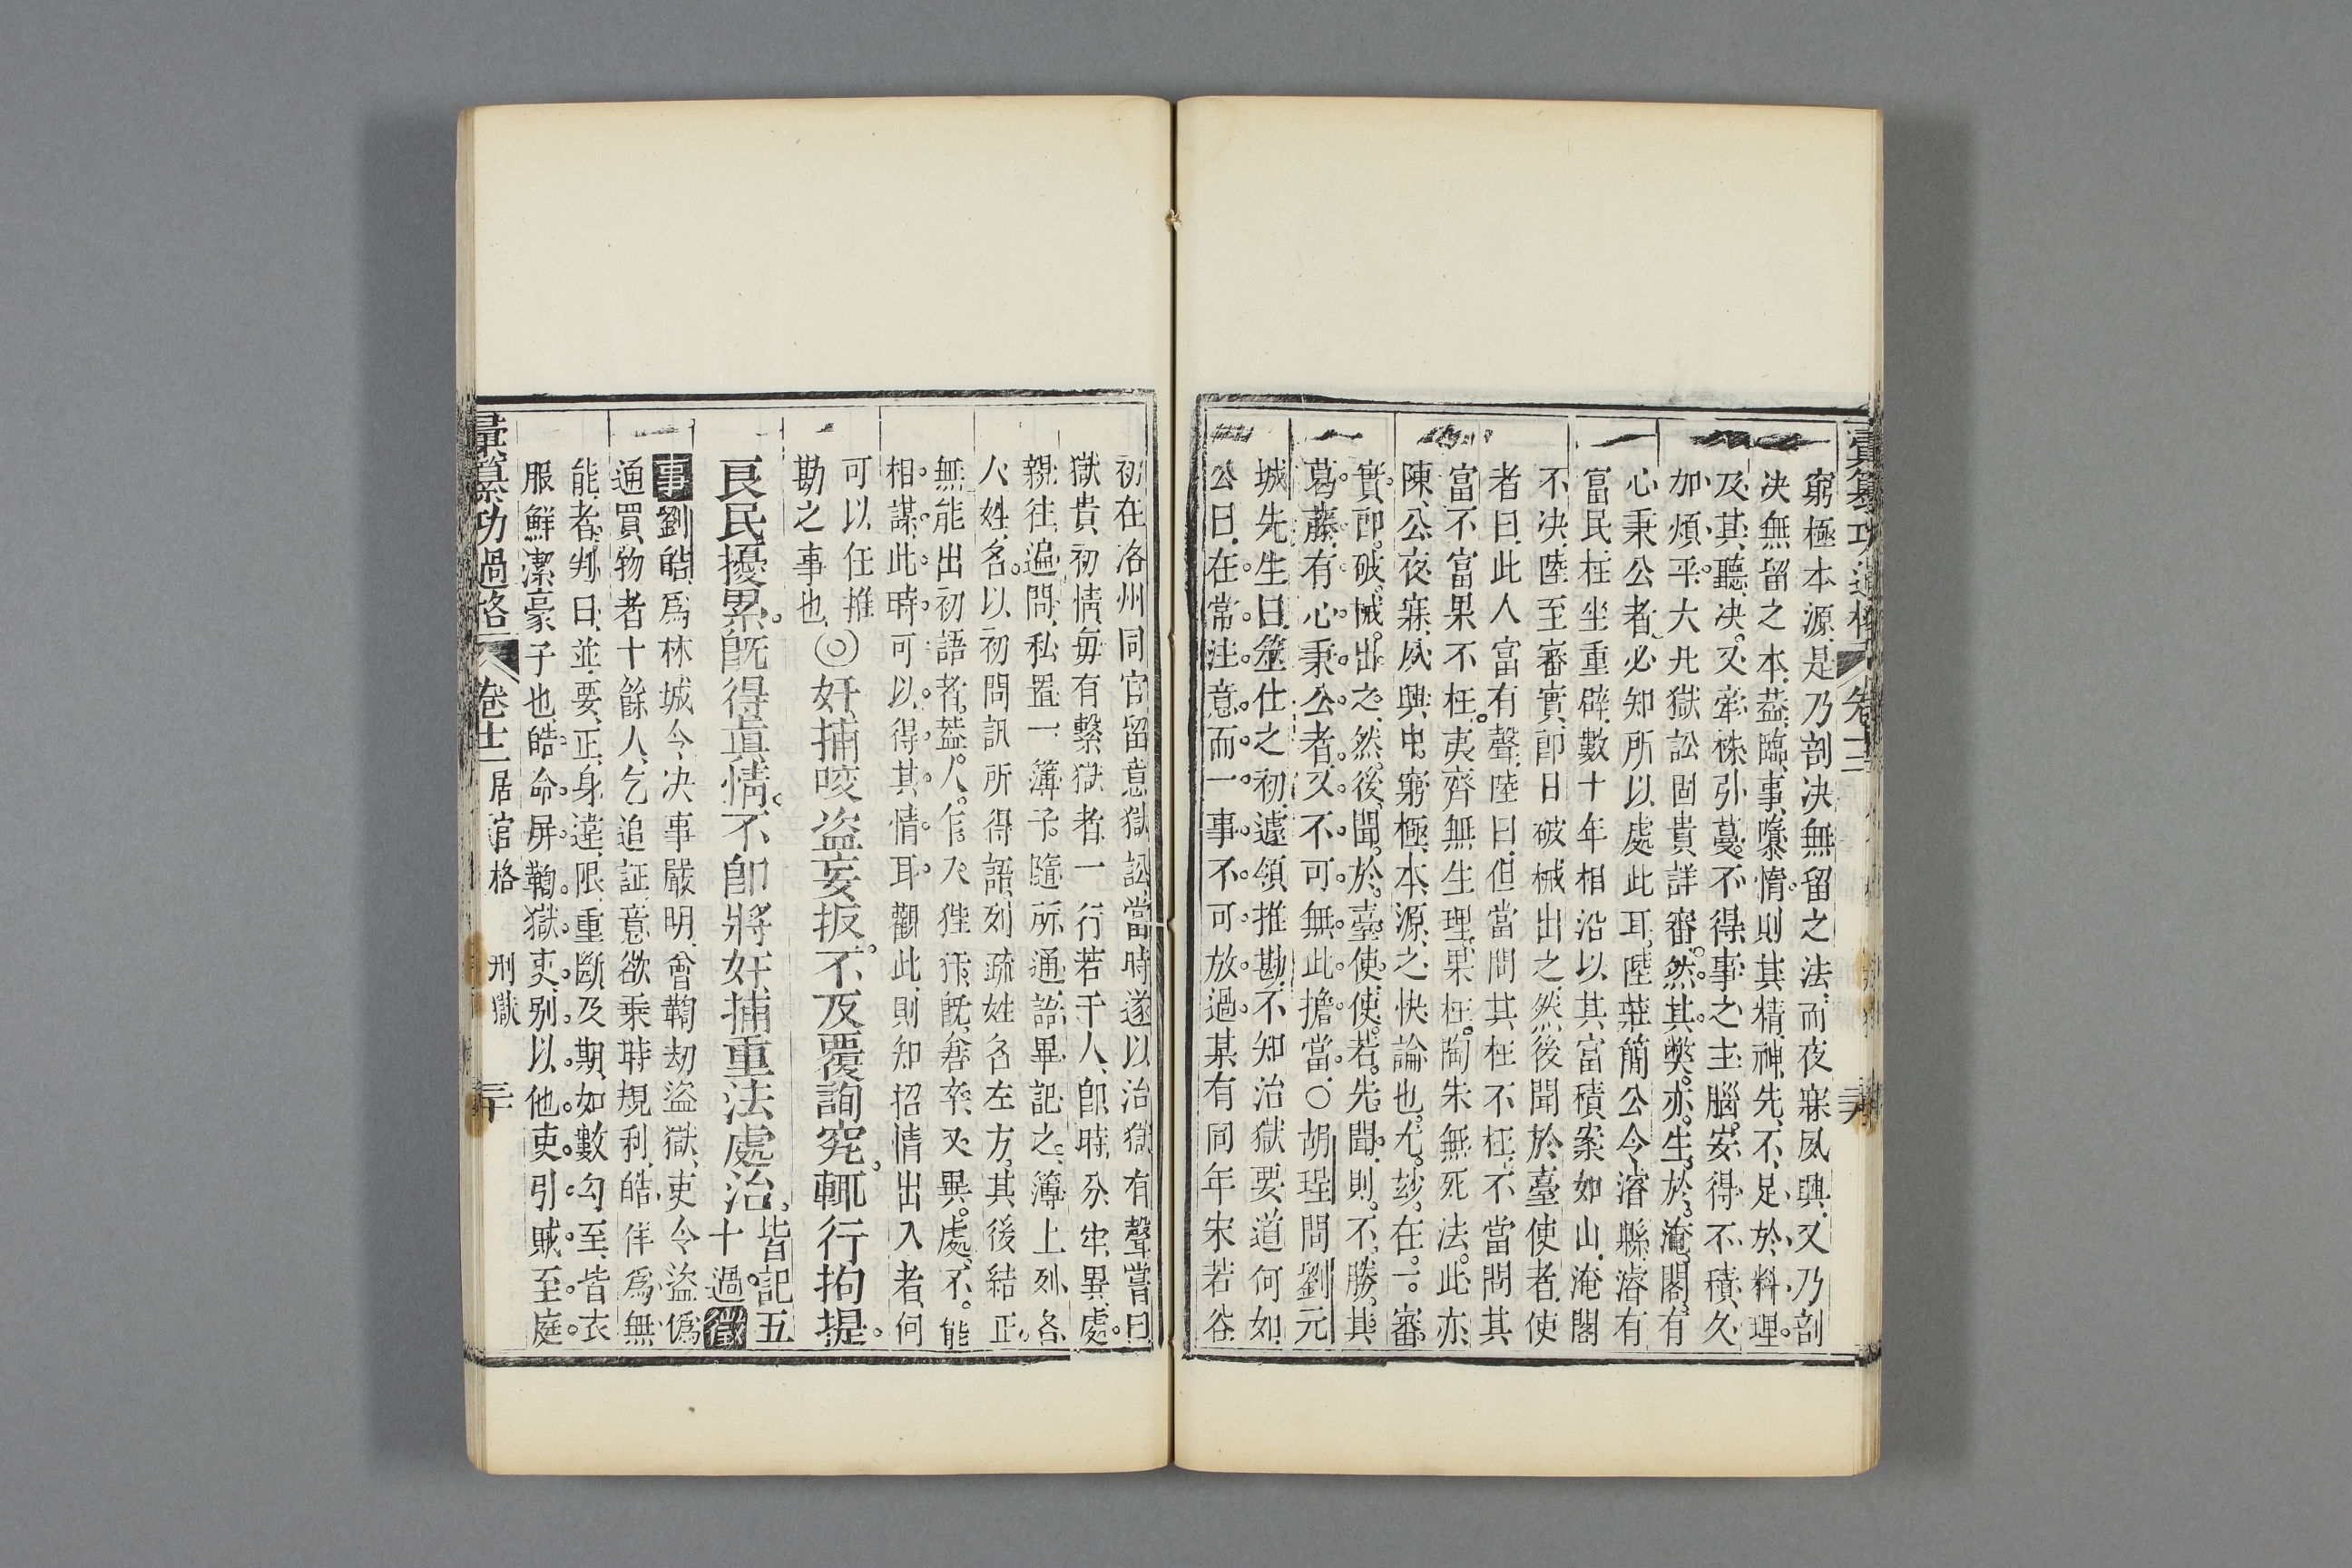 彙纂功過格 卷十二
窮極本源是乃剖決無留之法而夜寐夙興又乃剖
决無留之本葢臨事隳惰則其精神先不足於料理
及其聽決又牽株引蔓不得事之主腦安得不積久
加煩乎大凡獄訟固貴詳審然其弊亦生於淹閣有
心秉公者必知所以處此耳陸莊簡公令濬縣濬有
富民枉坐重辟數十年相沿以其富積案如山淹閣
不决陸至審實卽日破械出之然後聞於臺使者使
者曰此人富有聲陸曰但當問其枉不枉不當問其
富不富果不枉夷齊無生理果枉陶朱無死法此亦
陳公夜寐夙興中窮極本源之快論也尤玅在一審
實卽破械出之然後聞於臺使使若先聞則不勝其
葛藤有心秉公者又不可無此擔當○胡珵問劉元
城先生曰筮仕之初遽領推勘不知治獄要道何如
公曰在常注意而一事不可放過某有同年宋若谷
初在洛州同官留意獄訟當時遂以治獄有聲嘗曰
獄貴初情每有繫獄者一行若干人卽時分牢異處
親往遍問私置一簿子隨所通語畢記之簿上列各
人姓名以初問訊所得語列疏姓名左方其後結正
無能出初語者葢人乍入狴犴旣倉卒又異處不能
相謀此時可以得其情耳觀此則知招情出入者何
可以任推
勘之事也◎奸捕咬盜妄扳不及覆詢究輒行拘提
良民擾累旣得眞情不卽將奸捕重法處治皆記五
十過徵
事劉皓爲林城令决事嚴明會鞫刧盜獄吏令盜僞
通買物者十餘人乞追証意欲乘時規利皓佯爲無
能者判曰並要正身違限重斷及期如數勾至皆衣
服鮮潔豪子也皓命屏鞫獄吏别以他吏引賊至庭
彙纂功過格 卷十二 居官格 刑獄 三十